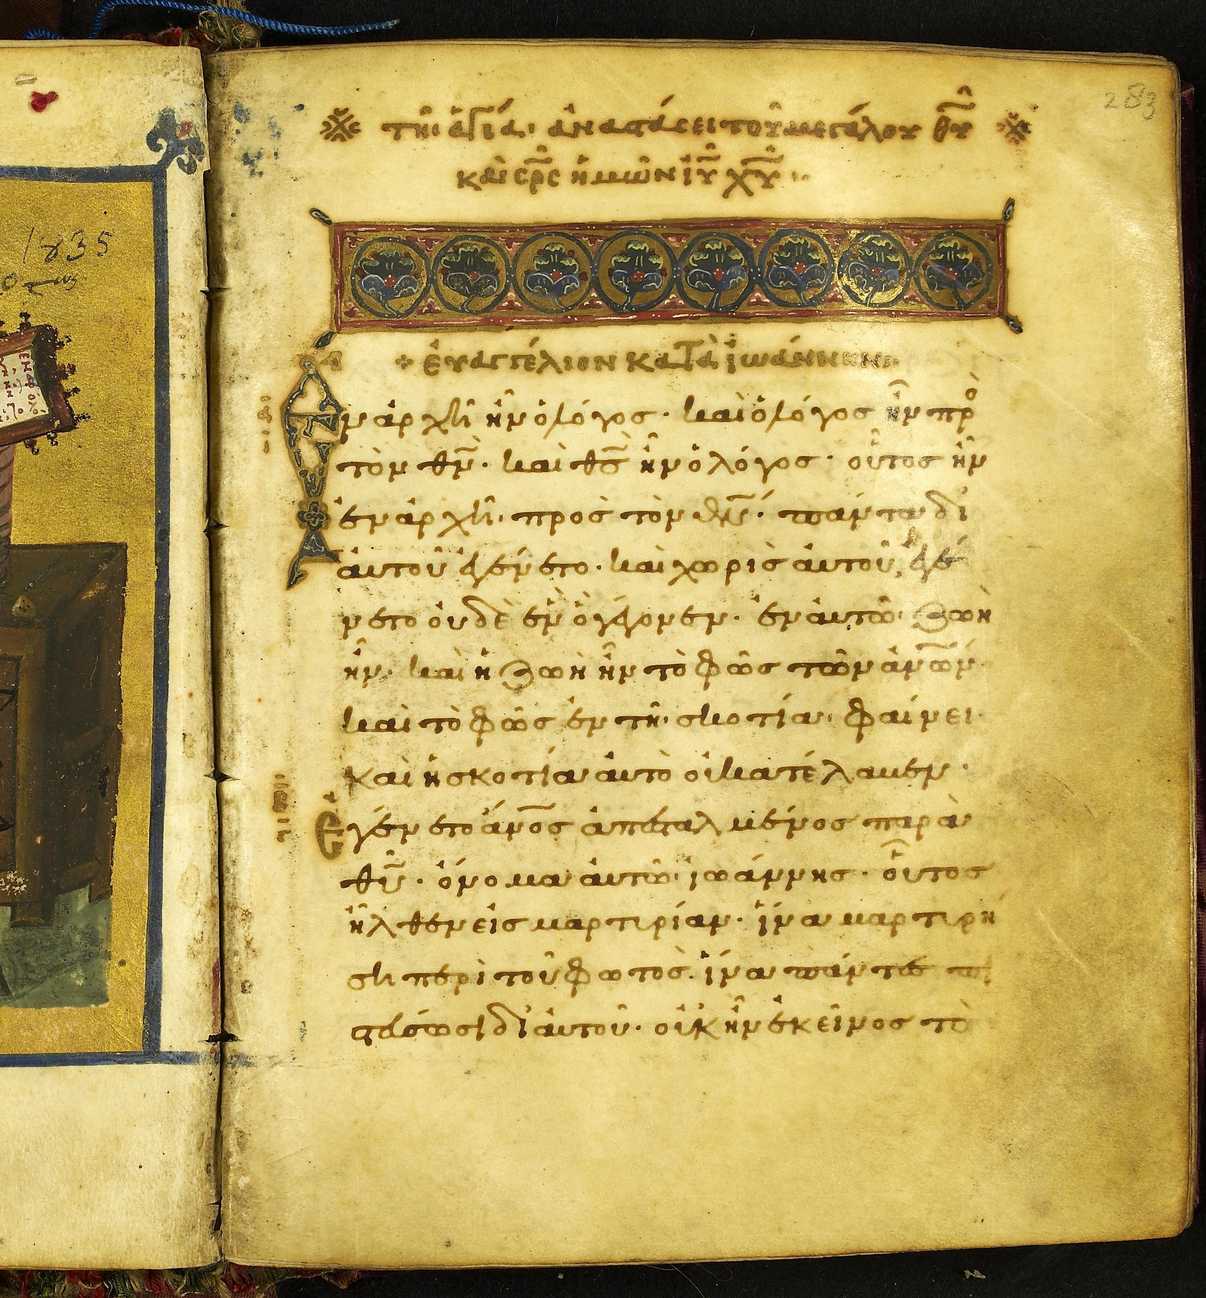 1835
283
τῆ ἁγία ἀναστάσει τοῦ μεγάλου θ̅υ̅
καὶ σ̅ρ̅ς ἡμῶν ἰ̅υ̅ χ̅υ̅
ἐυαγγέλιον κατὰ ἰωάννην
Ἐν ἀρχῆ ἦν ὁ λόγος · καὶ ὁ λόγος ἦν πρὸ
τὸν θ̅ν̅ · καὶ θ̅ς̅ ἦν ὁ λόγος · οὗτος ἦν
ἐν ἀρχῆ · πρὸς τὸν θ̅ν̅ · πάντα δι
ἀυτοῦ ἐγένετο · καὶ χωρὶς ἀυτοῦ ἐγέ
νετο ὀυδὲ ἓν ὃ γέγονεν · ἐν ἀυτῶ ζωὴ
ἦν · καὶ ἡ ζωὴ ἦν τὸ φῶς τῶν ἀν̅ω̅ν
καὶ τὸ φῶς ἐν τῆ σκοτία · φαίνει
καὶ ἡ σκοτία ἀυτὸ οὐ κατέλαβεν ·
Ἐγένετο ἄν̅ο̅ς ἀπεσταλμένος παρὰ
θ̅υ̅ · ὄνομα ἀυτῶ · ἰωάννης · οὗτος
ἦλθεν εἰς μαρτυρίαν · ἵνα μαρτυρή
ση περὶ τοῦ φωτὸς · ἵνα πάντες πι
στεύσωσι δι ἀυτοῦ · οὐκ ἦν ἐκεῖνος τὸ